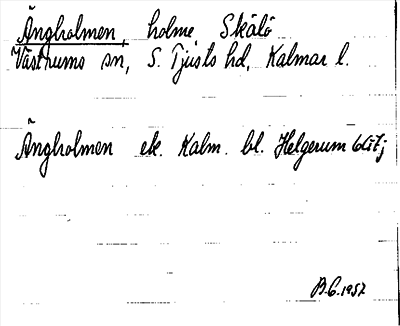 Ängholmen, holme, Skälö
Västrums sn, S. Tjusts hd, Kalmar l.
Ängholmen ek. Kalm. bl. Helgerum 6d7j
B.G. 1957